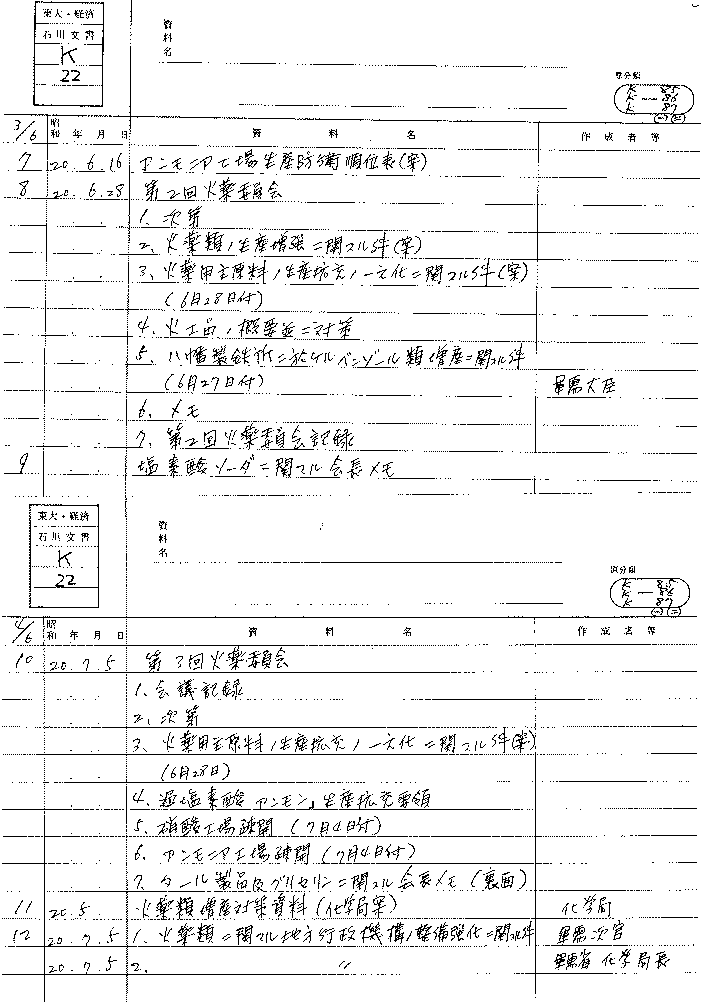 東大・経済
石川文書
K
22
資料名
原分類
K — 85
K — 86
K — 87
(一)(二)
3/6 昭和 年 月 日 資 料 名 作成者等
7 20.6.16 アンモニア工場生産防衛順位表(案)
8 20.6.28 第2回火薬委員会
1、次第
2、火薬類ノ生産増強ニ関スル件(案)
3、火薬用主原料ノ生産拡充ノ一元化ニ関スル件(案)
(6月28日付)
4、火工品ノ概要並ニ対策
5、八幡製鉄所ニ於ケルベンゾール類増産ニ関スル件
(6月27日付) 軍需大臣
6、メモ
7、第2回火薬委員会記録
9 塩素酸ソーダニ関スル会長メモ
東大・経済
石川文書
K
22
資料名
原分類
K — 85
K — 86
K — 87
(一)(二)
4/6 昭和 年 月 日 資 料 名 作成者等
10 20.7.5 第3回火薬委員会
1、会議記録
2、次第
3、火薬用主原料ノ生産拡充ノ一元化ニ関スル件(案)
(6月28日)
4、過塩素酸アンモン」生産拡充要領
5、硝酸工場疎開(7月4日付)
6、アンモニア工場疎開(7月4日付)
7、タール製品及グリセリンニ関スル会長メモ(裏面)
11 20.5 火薬類増産対策資料(化学局案) 化学局
12 20.7.5 1、火薬類ニ関スル地方行政機構ノ整備強化ニ関スル件 軍需次官
20.7.5 2. 〃 軍需省化学局長